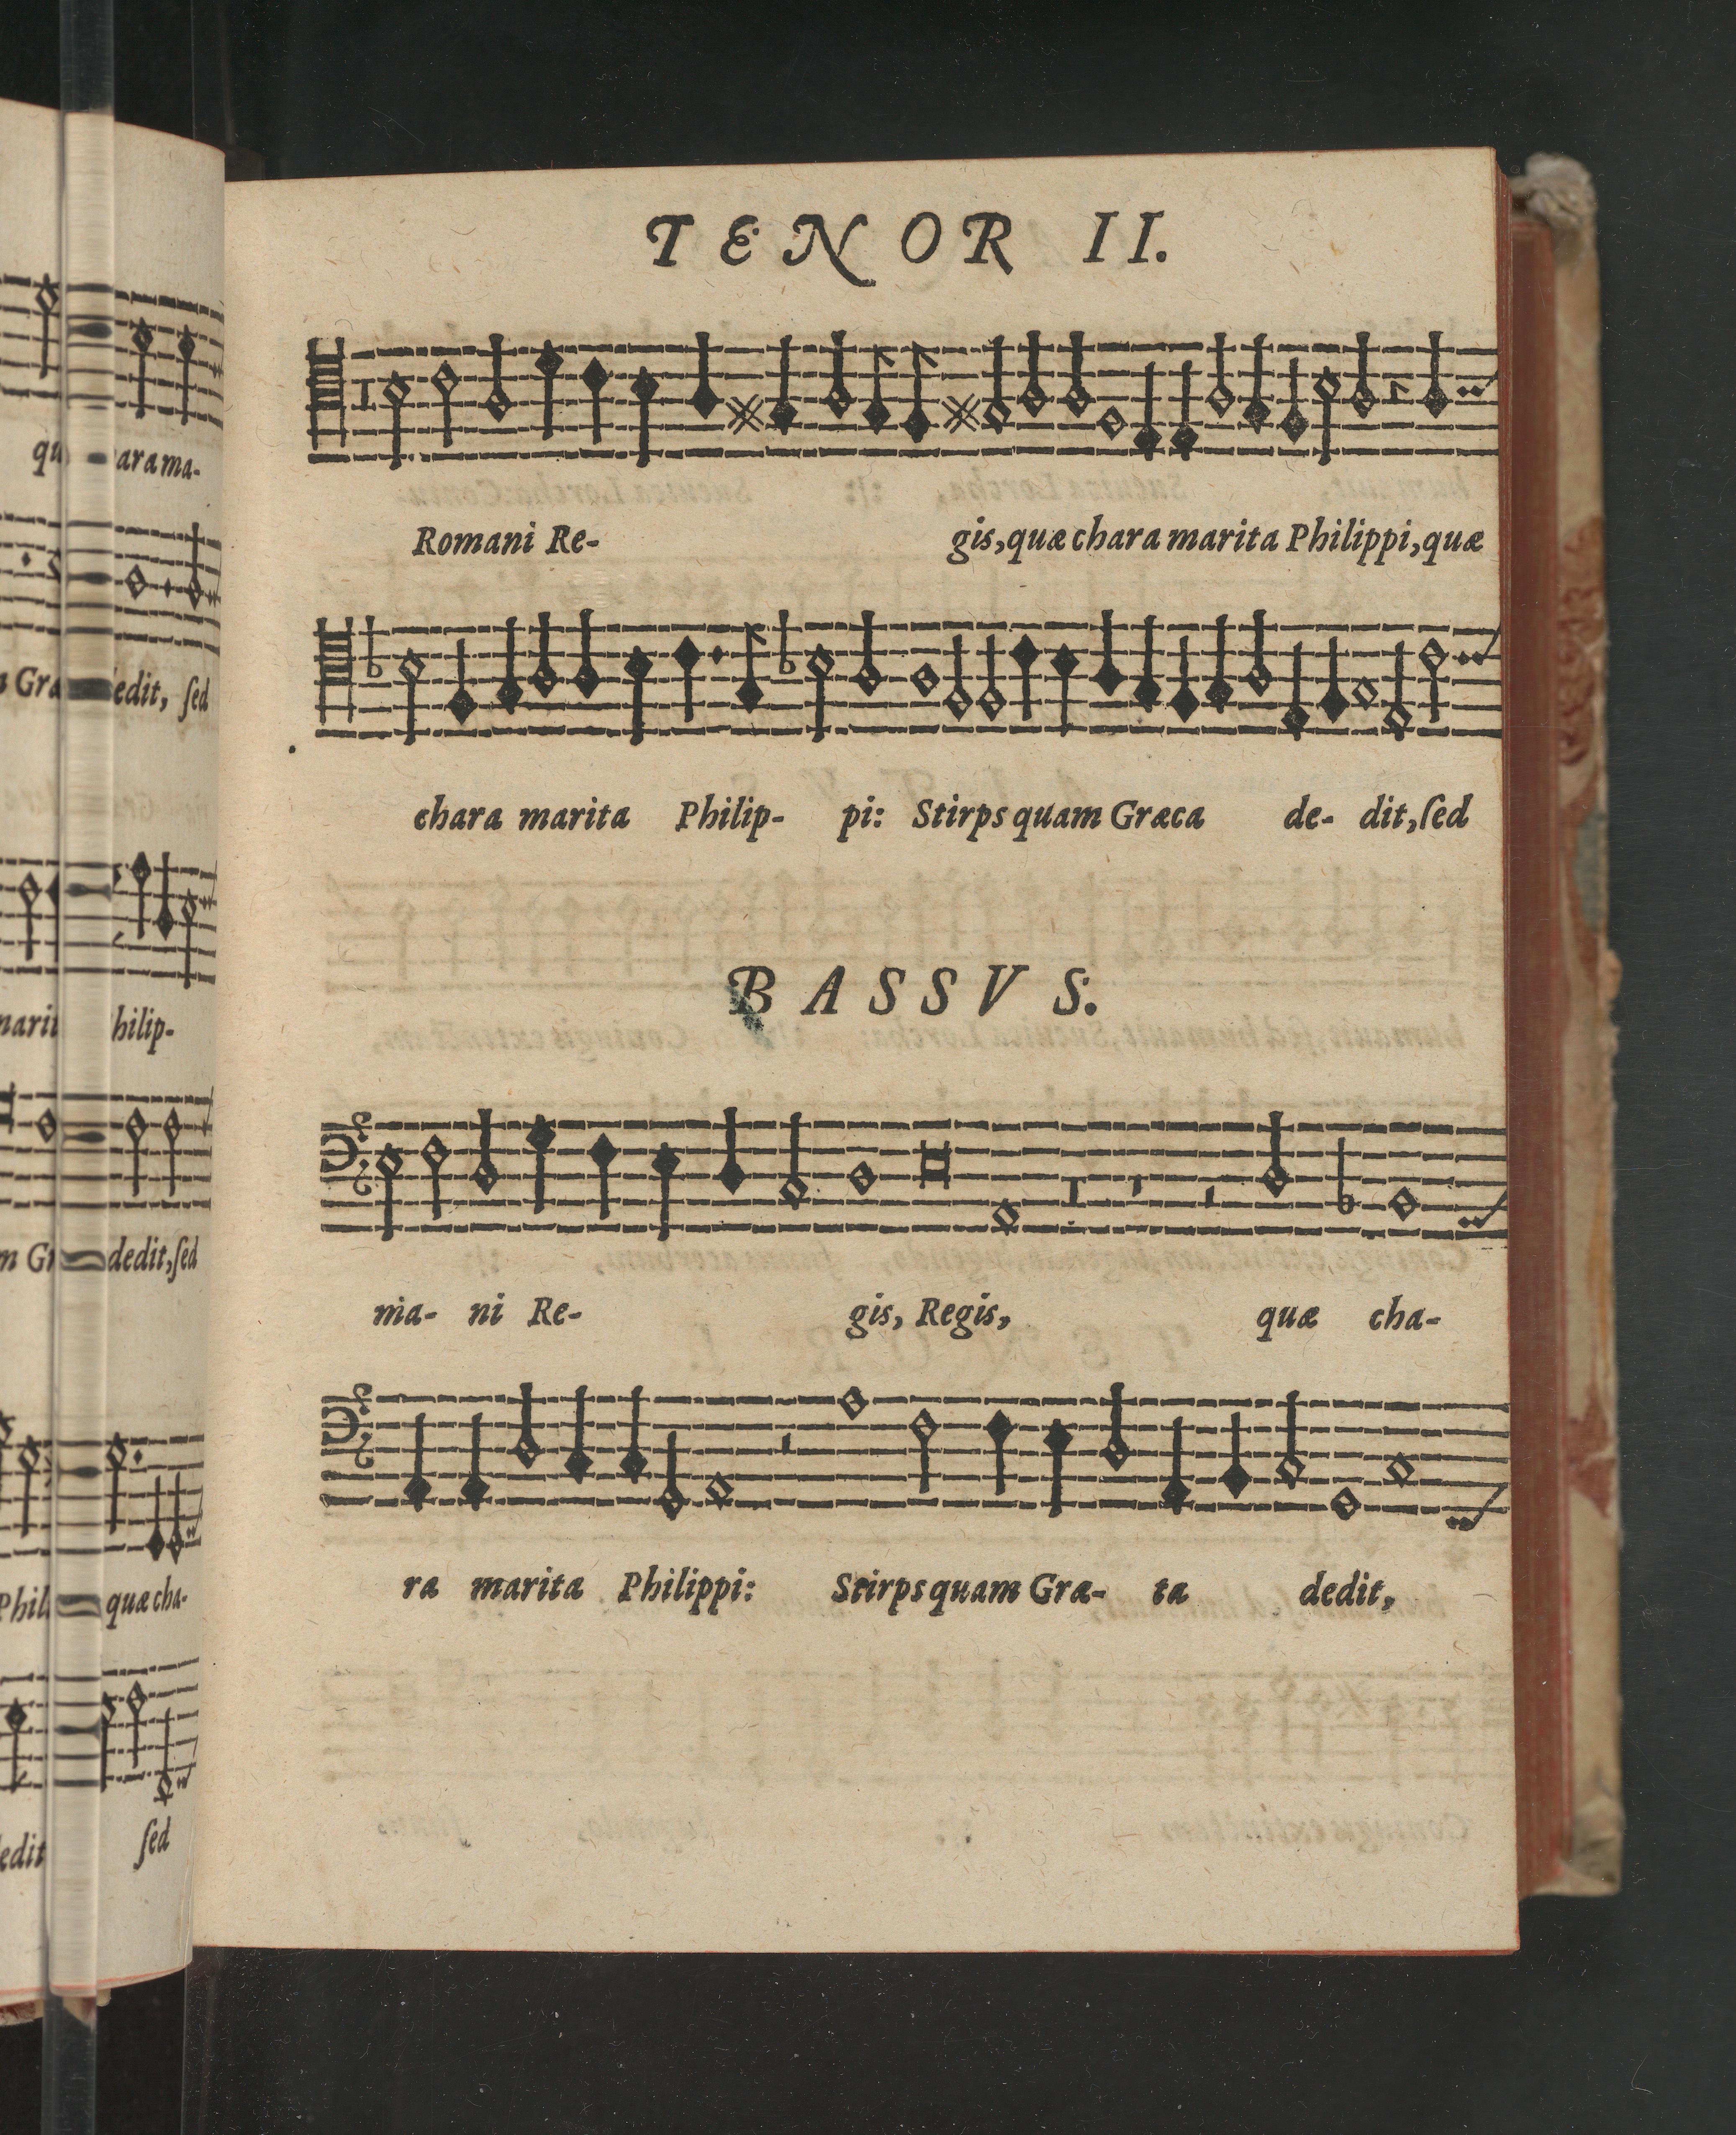 TENOR II.
Romani Re- gis, quæ chara marita Philippi, quæ
chara marita Philip- pi: Stirps quam Græca de- dit, ſed
BASSVS.
ma- ni Re- gis, Regis, quæ cha-
ra marita Philippi: Stirps quam Græ- ta dedit,
arama-
edit, ſed
hilip-
dedit, ſed
quæ cha-
edit ſed